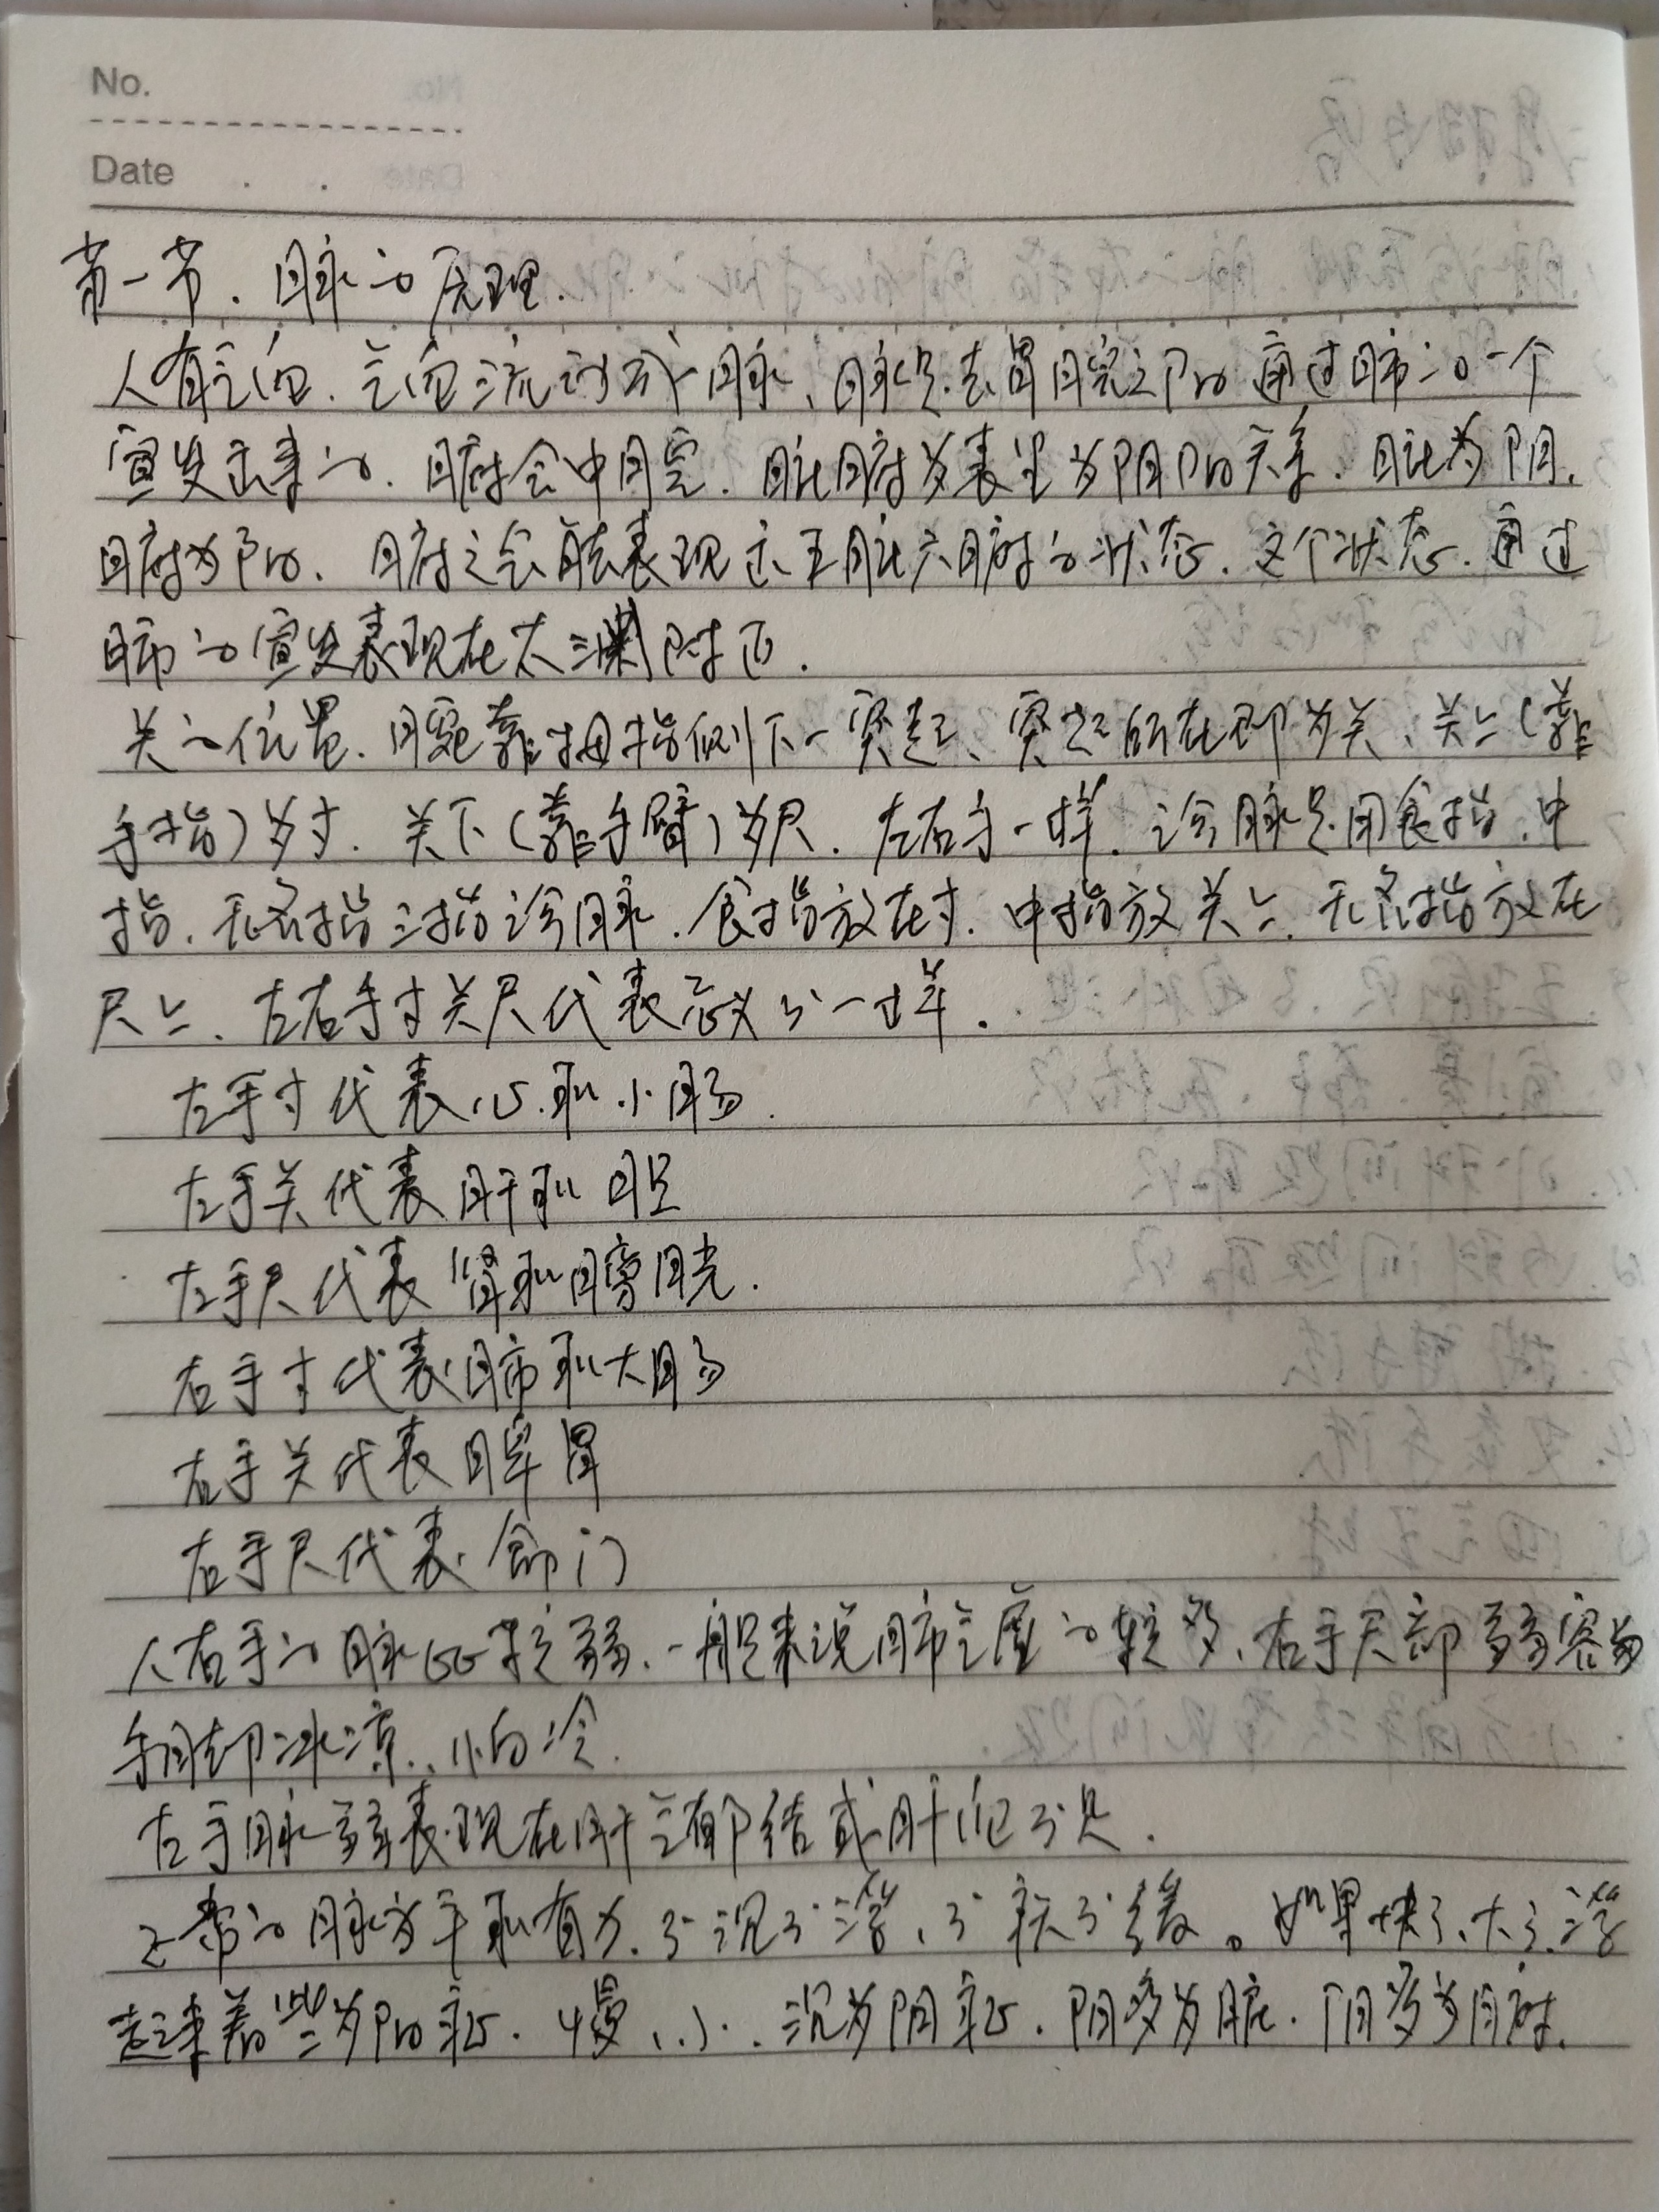 No.
Date
第一节、脉的原理.
人有气血、气血流动成脉、脉是去胃脘之阳通过肺的一个
宣发出来的. 腑会中脘. 脏腑为表里为阴阳关系. 脏为阴.
腑为阳. 腑之会能表现出五脏六腑的状态. 这个状态. 通过
肺的宣发表现在太渊附近.
关的位置. 腕靠拇指侧下一突起、突起所在即为关、关上(靠
手指)为寸. 关下(靠手臂)为尺. 左右手一样. 诊脉是用食指.中
指.无名指三指诊脉. 食指放在寸. 中指放关上. 无名指放在
尺上. 左右手寸关尺代表意义不一样.
左手寸代表心和小肠.
左手关代表肝和胆
左手尺代表肾和膀胱.
右手寸代表肺和大肠
右手关代表脾胃
右手尺代表命门
人右手的脉比较弱. 一般来说肺气虚的较多、右手尺部弱容易
手脚冰凉.、怕冷.
左手脉弱表现在肝气郁结或肝血不足.
正常的脉为平和有力. 不沉不浮、不疾不缓。如果快了、大了、浮
起来着些为阳症. 慢、小、沉为阴症. 阴多为脏. 阳多为腑.